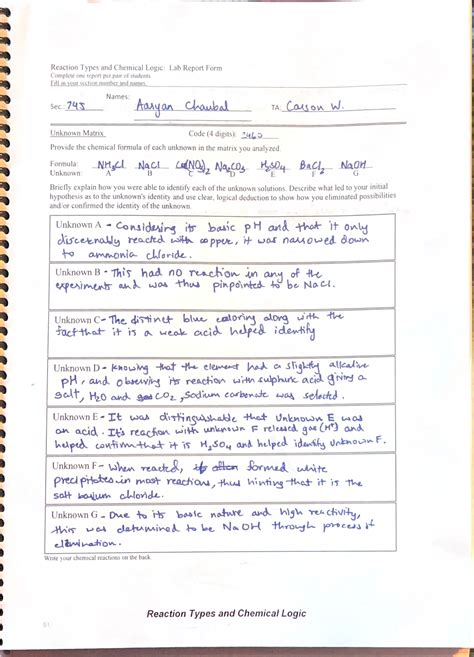 Reaction Types and Chemical Logic: Lab Report Form
Complete one report per pair of students.
Fill in your section number and names.
Names:
Sec. 743 Aaryan Chaubal TA: Carson W.
Unknown Matrix Code (4 digits):
Provide the chemical formula of each unknown in the matrix you analyzed.
Formula: NH4Cl NaCl Cu(NO3)2 Na2CO3 H2SO4 BaCl2 NaOH
Unknown: A B C D E F G
Briefly explain how you were able to identify each of the unknown solutions. Describe what led to your initial
hypothesis as to the unknown's identity and use clear, logical deduction to show how you eliminated possibilities
and/or confirmed the identity of the unknown.
Unknown A - Considering its basic pH and that it only
discernably reacted with copper, it was narrowed down
to ammonia chloride.
Unknown B - This had no reaction in any of the
experiments and was thus pinpointed to be NaCl.
Unknown C - The distinct blue coloring along with the
fact that it is a weak acid helped identify
Unknown D - Knowing that the element had a slightly alkaline
pH, and observing its reaction with sulphuric acid giving a
salt, H2O and gas CO2, sodium carbonate was selected.
Unknown E - It was distinguishable that Unknown E was
an acid. It's reaction with unknown F released gas (H+) and
helped confirm that it is H2SO4 and helped identify Unknown F.
Unknown F - When reacted, often formed white
precipitates in most reactions, thus hinting that it is the
salt barium chloride.
Unknown G - Due to its basic nature and high reactivity,
this was determined to be NaOH through process of
elimination.
Write your chemical reactions on the back.
Reaction Types and Chemical Logic
51